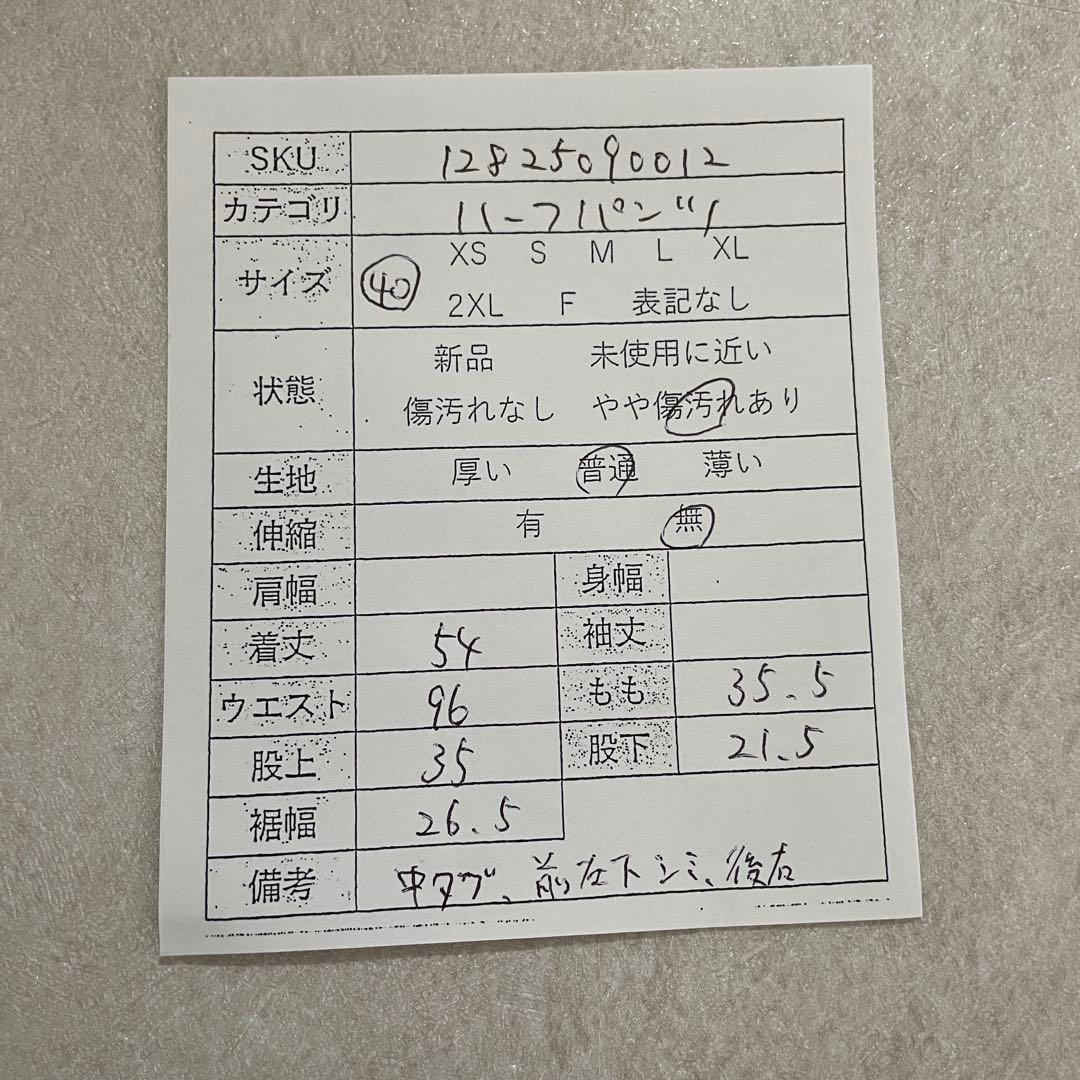 SKU 12825090012
カテゴリ ハーフパンツ
サイズ 40 XS S M L XL
2XL F 表記なし
状態 新品 未使用に近い
傷汚れなし やや傷汚れあり
生地 厚い 普通 薄い
伸縮 有 無
肩幅 身幅
着丈 54 袖丈
ウエスト 96 もも 35.5
股上 35 股下 21.5
裾幅 26.5
備考 中タグ、前左下シミ、後右